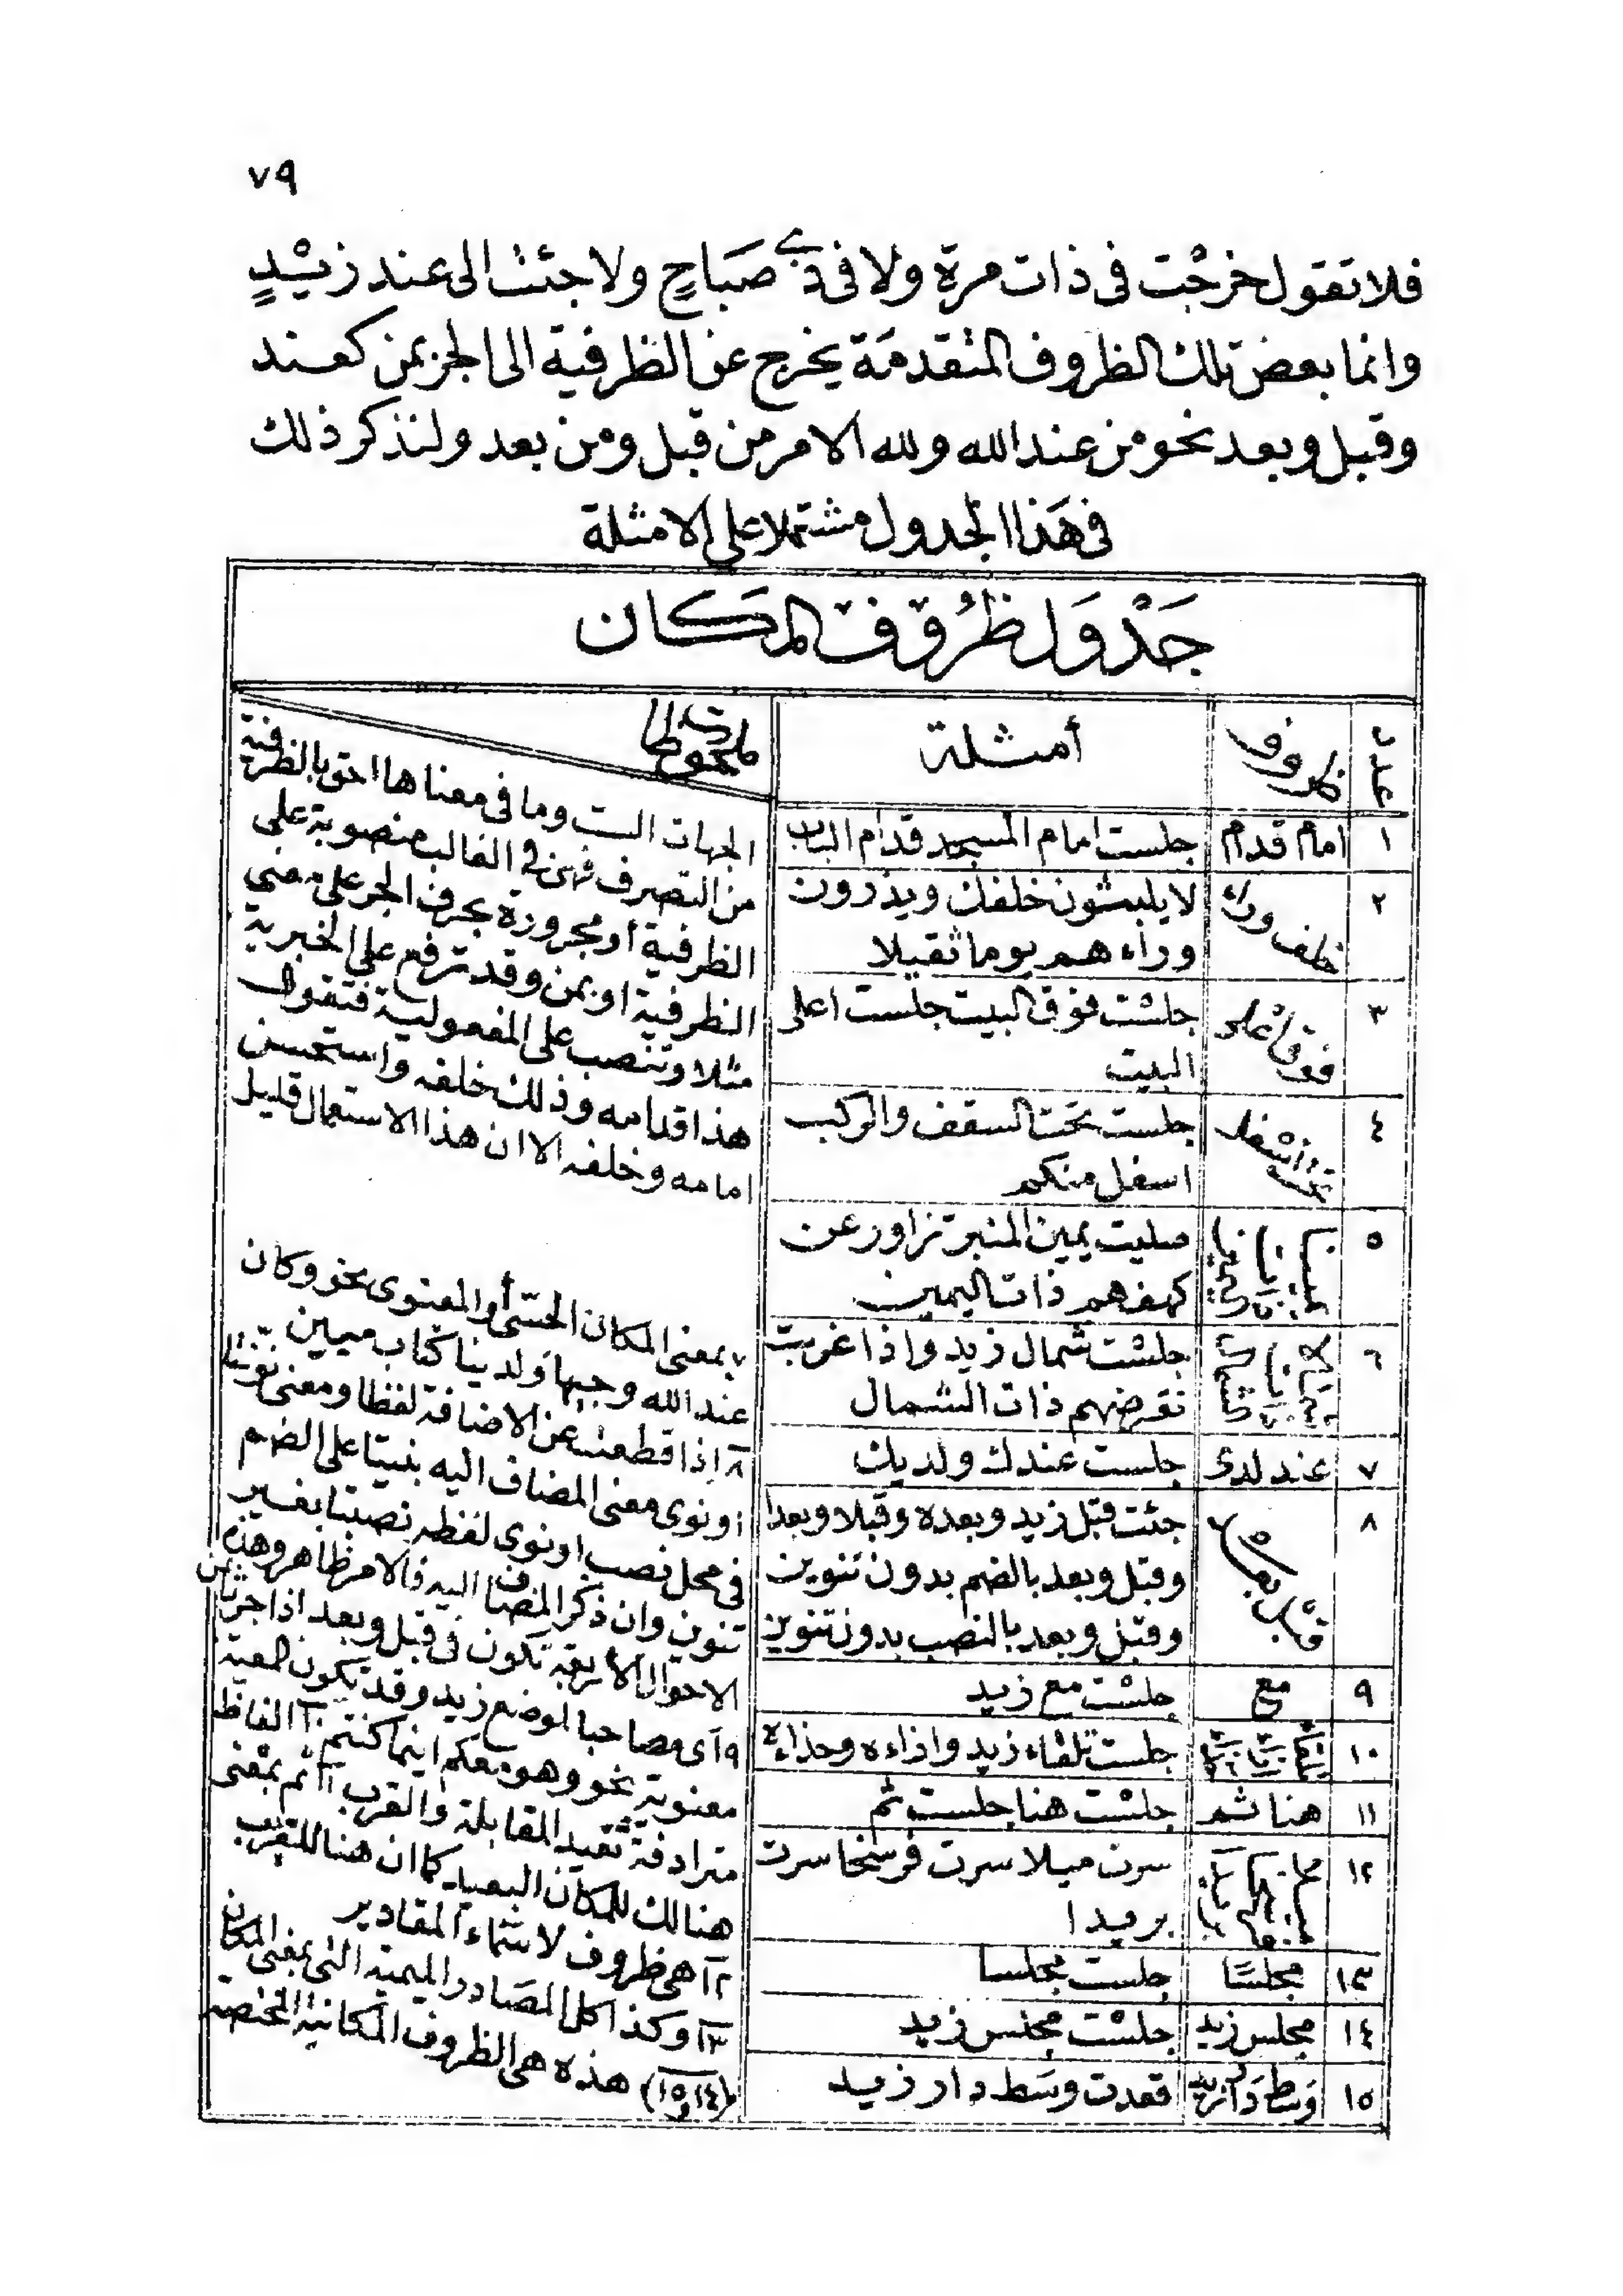 ٧٩
فلا تقول خرجْت فى ذات مرة ولا فى ذى صَبَاحٍ ولا جئت الى عند زيْدٍ
وانما بعض تلك الظروف المتقدمَة يخرج عن الظرفية الى الجر بمن كعند
وقبل وبعد نحو من عند الله ولله الامر من قبل ومن بعد ولنذكر ذلك
فى هَذا الجدول مشتملا على الامثلة
جَدْوَل ظرُوف المكَان
عدد
ظروف
أمثلة
ملحوظات
١
امام قدام
جلست امام المسجد قدام الباب
٢
خلف وراء
لا يلبثون خلفك ويذرون
وراءهم يوما ثقيلا
٣
فوق
جلست فوق البيت جلست اعلى
البيت
٤
تحت اسفل
جلست تحت السقف والركب
اسفل منكم
٥
صليت يمين المنبر تزاور عن
كهفهم ذات اليمين
٦
جلست شمال زيد واذا غربت
تقرضهم ذات الشمال
٧
عند لدى
جلست عندك ولديك
٨
قبل بعد
جئت قبل زيد وبعده وقبلا وبعدا
وقبل وبعد بالضم بدون تنوين
وقبل وبعد بالنصب بدون تنوين
٩
مع
جلست مع زيد
١٠
جلست تلقاء زيد وازاءه وحذاءه
١١
هنا ثم
جلست هنا جلست ثم
١٢
ميلا فرسخا بريدا
سرت ميلا سرت فرسخا سرت
بريدا
١٣
مجلسًا
جلست مجلسا
١٤
مجلس زيد
جلست مجلس زيد
١٥
وَسط دَار زيد
قعدت وسَط دار زيد
الجهات الست وما فى معناها احق بالظرفية
من التصرف فهى فى الغالب منصوبة على
الظرفية أو مجرورة بحرف الجر على معنى
الظرفية او بمن وقد ترفع على الخبرية
مثلا وتنصب على المفعولية فتقول
هذا قدامه وذلك خلفه واستحسن
امامه وخلفه الا ان هذا الاستعمال قليل
٧ بمعنى المكان الحسّى أو المعنوى نحو وكان
عند الله وجيها ولدينا كتاب مبين
٨ اذا قطعت عن الاضافة لفظا ومعنى نونتا
او نوى معنى المضاف اليه بنيتا على الضم
فى محل نصب او نوى لفظه نصبتا بغير
تنوين وان ذكر المضاف اليه فالامر ظاهر وهذه
الاحوال الأربعة تكون فى قبل وبعد اذا جرتا بمن
٩ أى مصاحبا لموضع زيد وقد تكون المعية
معنوية نحو وهو معكم اينما كنتم ١٠ الفاظ
مترادفة تفيد المقابلة والقرب ١١ ثم بمعنى
هنالك للمكان البعيد كما ان هنا للقريب
١٢ هى ظروف لاسْماء المقادير
١٣ وكذا كل المصَادر الميمية التى بمعنى المكان
(١٤ و ١٥) هذه هى الظروف المكانية المختصة